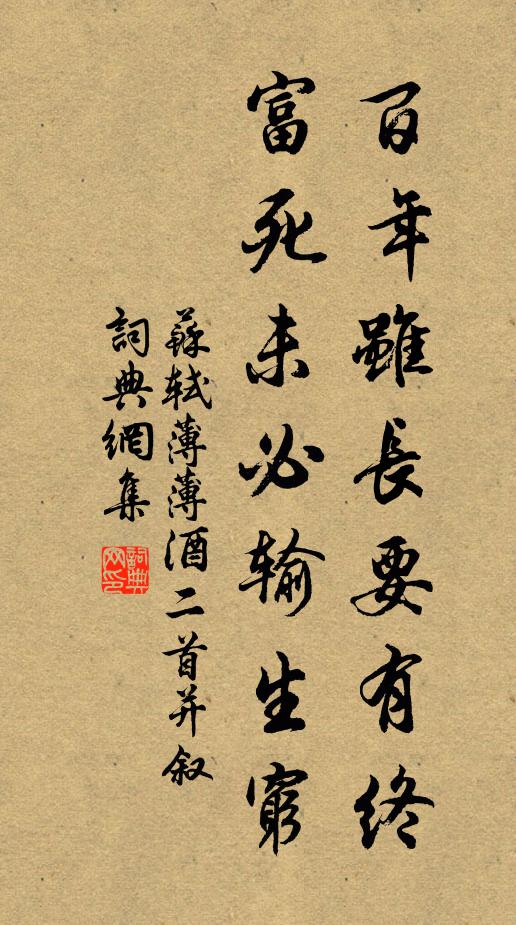 百年雖長要有終
富死未必输生窮
蘇軾薄薄酒二首并叙
詞典網集
詞典网印